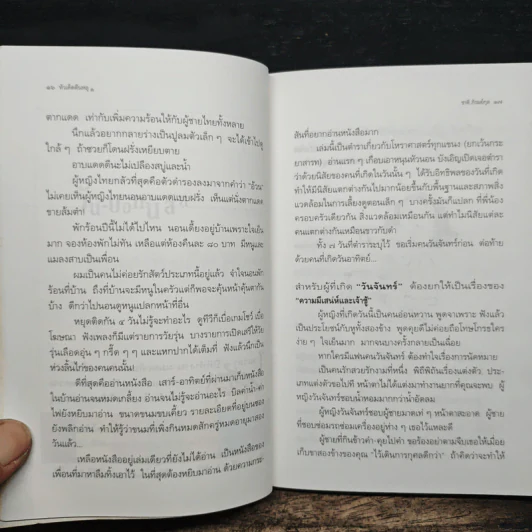 ตากแดด เท่ากับเพิ่มความร้อนให้กับผู้ชายไทยทั้งหลาย
นึกแล้วอยากกลายร่างเป็นปูลมตัวเล็ก ๆ จะได้เข้าไป
ใกล้ ๆ ถ้าซวยก็โดนฝรั่งเหยียบตาย
อาบแดดดีนะไม่เปลืองสบู่และน้ำ
ผู้หญิงไทยกลัวที่สุดคือตัวดำรองลงมาจากคำว่า "อ้วน"
ไม่เคยเห็นผู้หญิงไทยนอนอาบแดดแบบฝรั่ง เห็นแต่นั่งตากแดด
ขายส้มตำ!
พักร้อนปีนี้ไม่ได้ไปไหน นอนเตี้ยงอยู่บ้านเพราะใจเย็น
มาก จองห้องพักไม่ทัน เหลือแต่ห้องคืนละ ๘๐ บาท มีหนูและ
แมลงสาบเป็นเพื่อน
ผมเป็นคนไม่ค่อยรักสัตว์ประเภทนี้อยู่แล้ว จำใจนอนพัก
ร้อนที่บ้าน ถึงที่บ้านจะมีหนูในครัวแต่ก็พอจะคุ้นหน้าคุ้นตากัน
บ้าง ดีกว่าไปนอนดูหนูแปลกหน้าที่อื่น
หยุดติดกัน ๔ วันไม่รู้จะทำอะไร ดูทีวีก็เบื่อเกมโชว์ เบื่อ
โฆษณา ฟังเพลงก็มีแต่รายการวัยรุ่น บางรายการเปิดเสรีให้วัย
รุ่นเลือดอุ่น ๆ กรี๊ด ๆ และแหกปากได้เต็มที่ ฟังแล้วนึกเป็น
ห่วงลิ้นไก่ของคนคนนั้น!
ดีที่สุดคืออ่านหนังสือ เสาร์-อาทิตย์ที่ผ่านมาเก็บหนังสือ
ในบ้านอ่านจนหมดเกลี้ยง อ่านจนไม่รู้จะอ่านอะไร บิลค่าน้ำ-ค่า
ไฟยังหยิบมาอ่าน ขนาดขนมขบเคี้ยว รายละเอียดที่อยู่บนซอง
ยังพลิกอ่าน ทำให้รู้ว่าขนมที่เพิ่งกินหมดสักครู่หมดอายุมาสอง
วันแล้ว...
เหลือหนังสืออยู่เล่มเดียวที่ยังไม่ได้อ่าน เป็นหนังสือของ
เพื่อนที่มาหาลืมทิ้งเอาไว้ ในที่สุดต้องหยิบมาอ่าน ด้วยความกระ-
สันที่อยากอ่านหนังสือมาก
เล่มนี้เป็นตำราเกี่ยวกับโหราศาสตร์ทุกแขนง (ยกเว้นกระ
ยาสารท) อ่านแรก ๆ เกือบเอาหนุนหัวนอน บังเอิญเปิดเจอตำรา
ว่าด้วยนิสัยของคนที่เกิดในวันนั้น ๆ ได้รับอิทธิพลของวันที่เกิด
ทำให้มีนิสัยแตกต่างกันไปมากน้อยขึ้นกับพื้นฐานและสภาพสิ่ง
แวดล้อมในการเลี้ยงดูตอนเล็ก ๆ บางครั้งมันก็แปลก ที่พี่น้อง
ครอบครัวเดียวกัน สิ่งแวดล้อมเหมือนกัน แต่ทำไมนิสัยแต่ละ
คนแตกต่างกันเหมือนขาวกับดำ
ทั้ง ๗ วันที่ตำราระบุไว้ ขอเริ่มคนวันจันทร์ก่อน ต่อท้าย
ด้วยคนที่เกิดวันอาทิตย์...
สำหรับผู้ที่เกิด "วันจันทร์" ต้องยกให้เป็นเรื่องของ
"ความมีเสน่ห์และเจ้าชู้"
ผู้หญิงที่เกิดวันนี้เป็นคนอ่อนหวาน พูดจาเพราะ ฟังแล้ว
เป็นประโยชน์กับหูทั้งสองข้าง พูดคุยดีไม่ค่อยถือโทษโกรธใคร
ง่าย ๆ ใจเย็นมาก มากจนบางครั้งกลายเป็นเฉื่อย
หากใครมีแฟนคนวันจันทร์ ต้องทำใจเรื่องการนัดหมาย
เป็นคนรักสวยรักงามที่หนึ่ง พิถีพิถันเรื่องแต่งตัว ประเภท
ผู้หญิงวันจันทร์ชอบผู้ชายมาดเท่ ๆ หน้าตาสะอาด ผู้ชาย
ผู้ชายที่กินข้าวคำ-คุยไปคำ ขอร้องอย่าตามจีบเธอให้เมื่อย
เก็บขาสองข้างของคุณ "ไว้เดินการกุศลดีกว่า" ถ้าคิดว่าจะทำให้